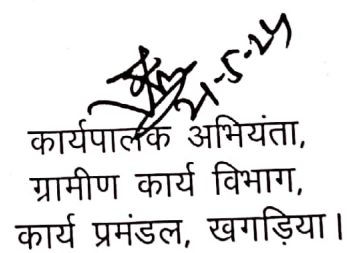 21-5-24
कार्यपालक अभियंता,
ग्रामीण कार्य विभाग,
कार्य प्रमंडल, खगड़िया।